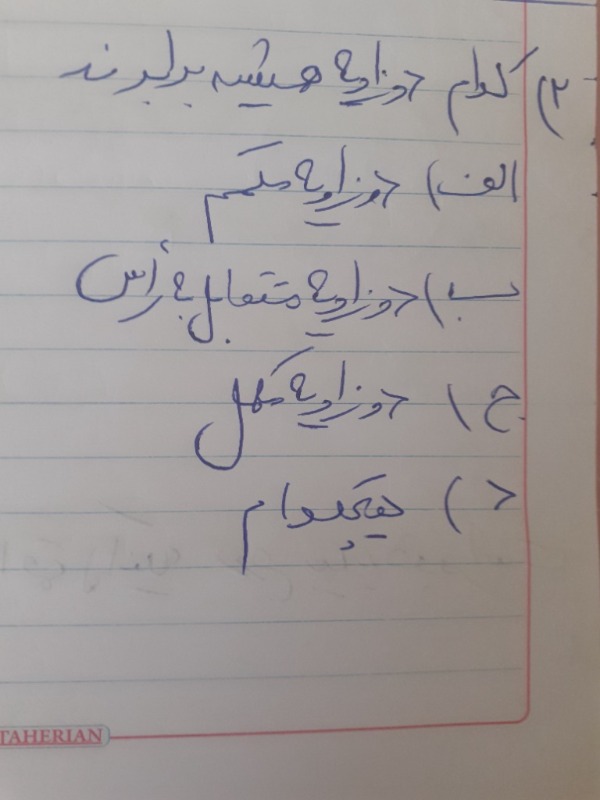 ۳) کدام دو زاویه همیشه برابرند
الف) دو زاویه مکمم
ب) دو زاویه متقابل به رأس
ج) دو زاویه مکمل
د) هیچکدام
TAHERIAN